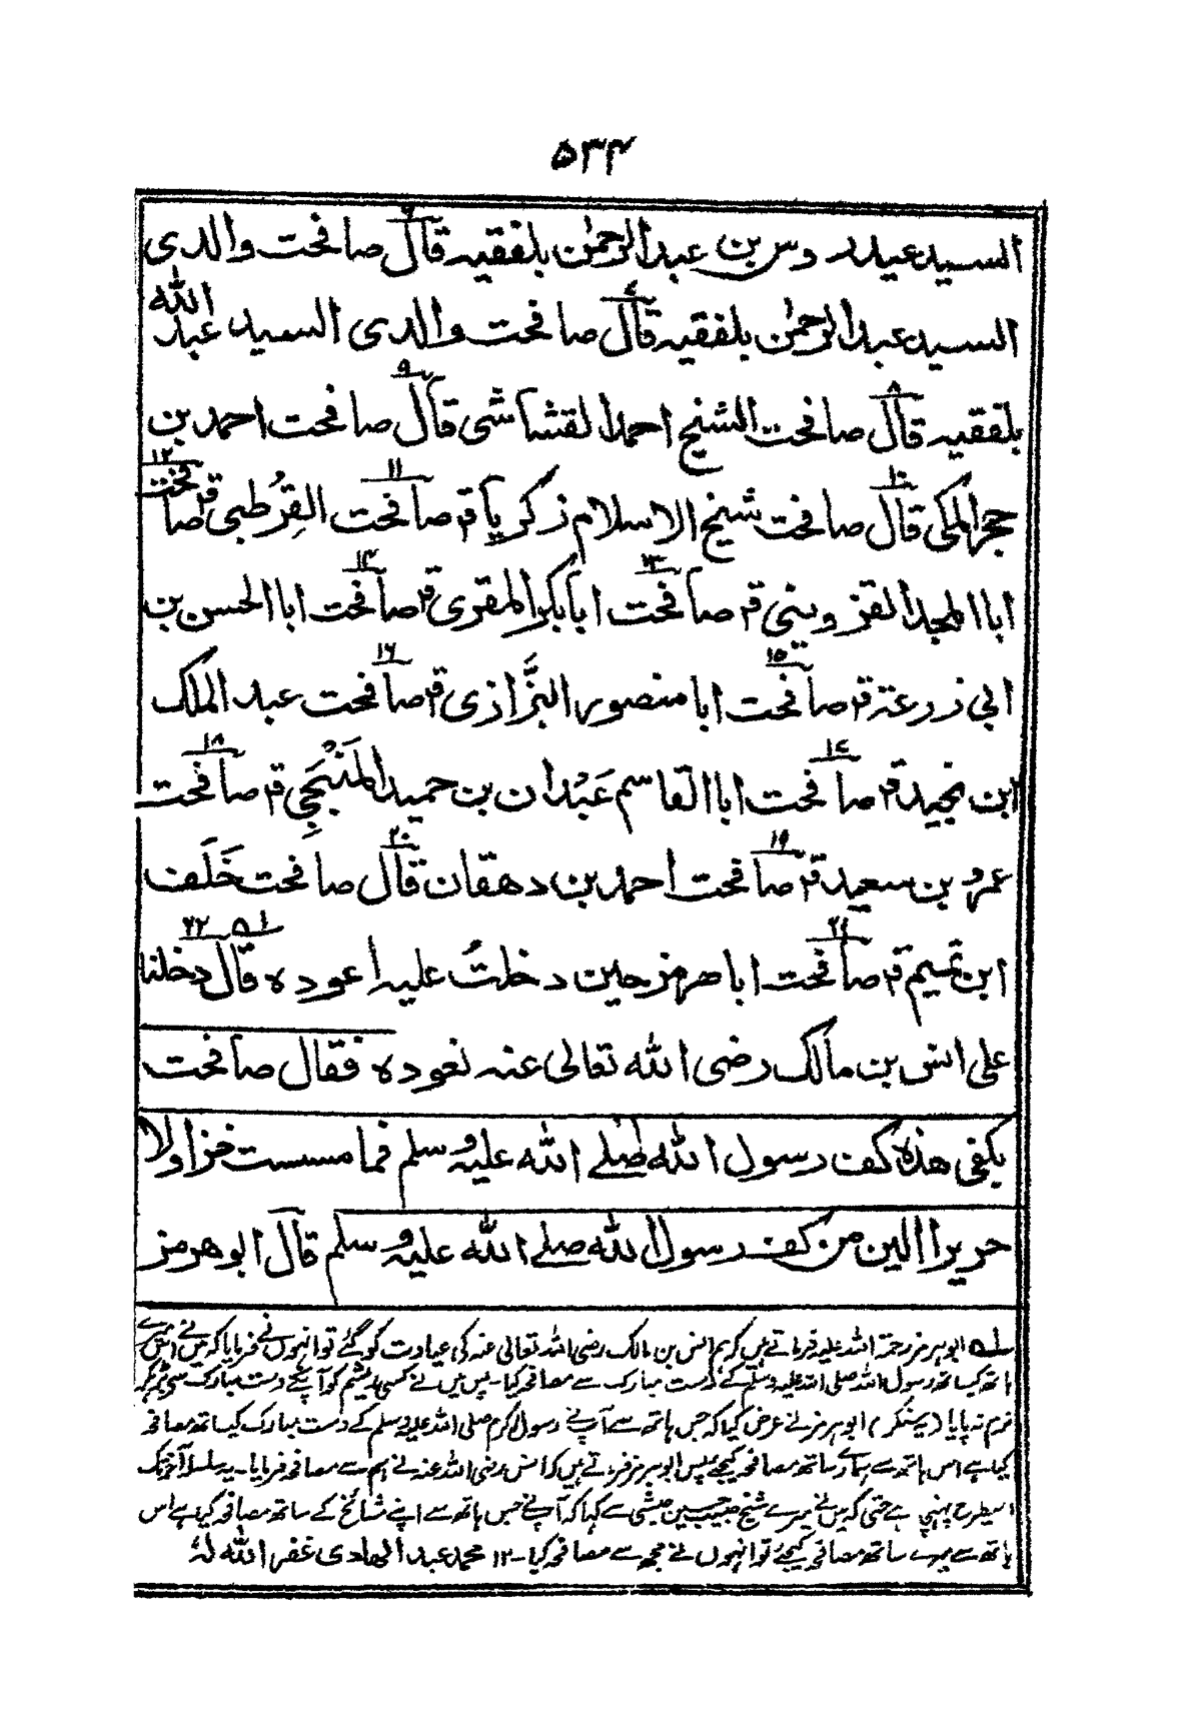 ۵۳۴
السيد عيدروس بن عبد الرحمٰن بلفقيه قال صافحت والدى
السيد عبد الرحمٰن بلفقيه قال صافحت والدى السيد عبد الله
بلفقيه قال صافحت الشيخ احمد القشاشى قال صافحت احمد بن
حجر المكى قال صافحت شيخ الاسلام زكريا قم صافحت القِرُطبى قم صافحت
ابا المجد القزوينى قم صافحت ابا بكر المقرى قم صافحت ابا الحسن بن
ابي زرعة قم صافحت ابا منصور البزَّازى قم صافحت عبد الملك
ابن نجيد قم صافحت ابا القاسم عَبْدان بن حميد المَنْبَجِي قم صافحت
عمرو بن سعيد قم صافحت احمد بن دهقان قال صافحت خَلَف
ابن تميم قم صافحت ابا هرمز حين دخلتُ عليه اعوده قال دخلنا
على انس بن مالك رضى الله تعالى عنه نعوده فقال صافحت
بكفى هذه كف رسول الله صلے الله عليه وسلم فما مسست خزا ولا
حريرا الين من كف رسول الله صلے الله عليه وسلم قال ابو هرمز
لہ ابوہرمز رحمۃ اللہ علیہ فرماتے ہیں کہ ہم انس بن مالک رضی اللہ تعالیٰ عنہ کی عیادت کو گئے تو انہوں نے فرمایا کہ میں نے اس
ہاتھ کیساتھ رسول اللہ صلی اللہ علیہ وسلم کے دست مبارک سے مصافحہ کیا۔ پس میں نے کسی ریشم کو آپ کے دست مبارک سے
نرم نہ پایا (یہ سنکر) ابوہرمز نے عرض کیا کہ جس ہاتھ سے آپ نے رسول اکرم صلی اللہ علیہ وسلم کے دست مبارک کیساتھ مصافحہ
کیا ہے اس ہاتھ سے ہمارے ساتھ مصافحہ کیجئے پس ابوہرمز فرماتے ہیں کہ انس رضی اللہ عنہ نے ہم سے مصافحہ فرمایا۔ یہ سلسلہ آخر تک
اسیطرح پہنچی ہے حتی کہ میں نے میرے شیخ حبیب حسین حبشی سے کہا کہ آپ نے جس ہاتھ سے اپنے مشائخ کے ساتھ مصافحہ کیا ہے اس
ہاتھ سے میرے ساتھ مصافحہ کیجئے تو انہوں نے مجھ سے مصافحہ کیا۔ ۱۲ محمد عبد الهادى غفر الله لهٗ